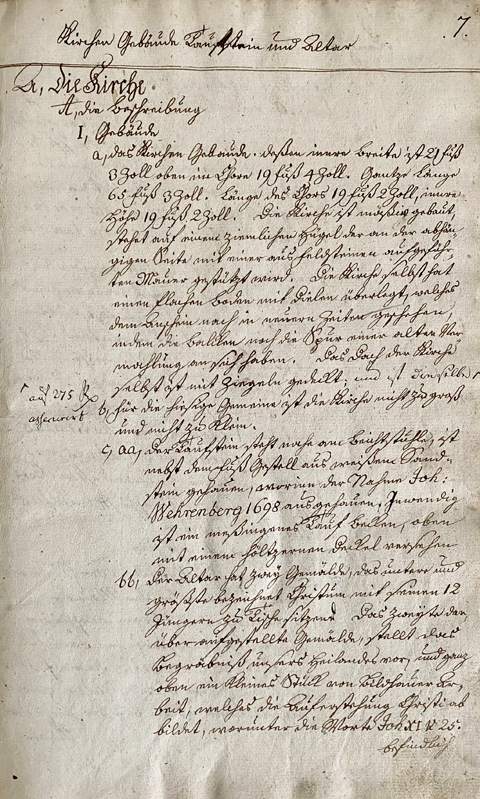 7.
Kirchen Gebäude Taufstein und Altar
A, die Kirche.
A, die Beschreibung
I, Gebäude
a, das Kirchen Gebäude. deßen innre Breite ist 21 fuß
3 Zoll oben im Chore 19 fuß 4 Zoll. Gantze Länge
65 fuß 3 Zoll. Länge des Chors 19 fuß 2 Zoll, innre
Höhe 19 fuß 2 Zoll. Die Kirche ist mäßig gebaut,
stehet auf einem ziemlichen Hügel der an der abhän-
gigen Seite mit einer aus feldsteinen aufgeführ-
ten Mauer gestützt wird. Die Kirche selbst hat
einen flachen Boden mit Dielen überlegt, welches
dem Anschein nach in neuern Zeiten geschehen,
indem die Balken noch die Spur einer alten Ver-
an sich haben. Das Dach der Kirche
selbst ist mit Ziegeln gedeckt; und ist dieselbe
auf 275 Rx
assecurirt
b, für die hiesige Gemeine ist die Kirche nicht zu groß
und nicht zu klein.
c, aa, der Taufstein steht nahe am Beichtstuhle, ist
nebst dem fuß Gestell aus weißem Sand-
stein gehauen, worinn der Nahme Joh:
Wehrenberg 1698 ausgehauen, Inwendig
ist ein meßingenes Tauf Becken, oben
mit einem höltzernen Deckel versehen
bb, Der Altar hat zwey Gemälde, das untere und
größte bezeichnet Christum mit seinen 12
Jüngern zu Tische sitzend. Das zweyte der
über aufgestellte Gemälde, stellt das
Begräbniß unsers Heilandes vor, und ganz
oben ein kleines Stück von Bildhauer Ar-
beit, welches die Auferstehung Christi ab
bildet, worunter die Worte Joh XI V 25.
befindlich